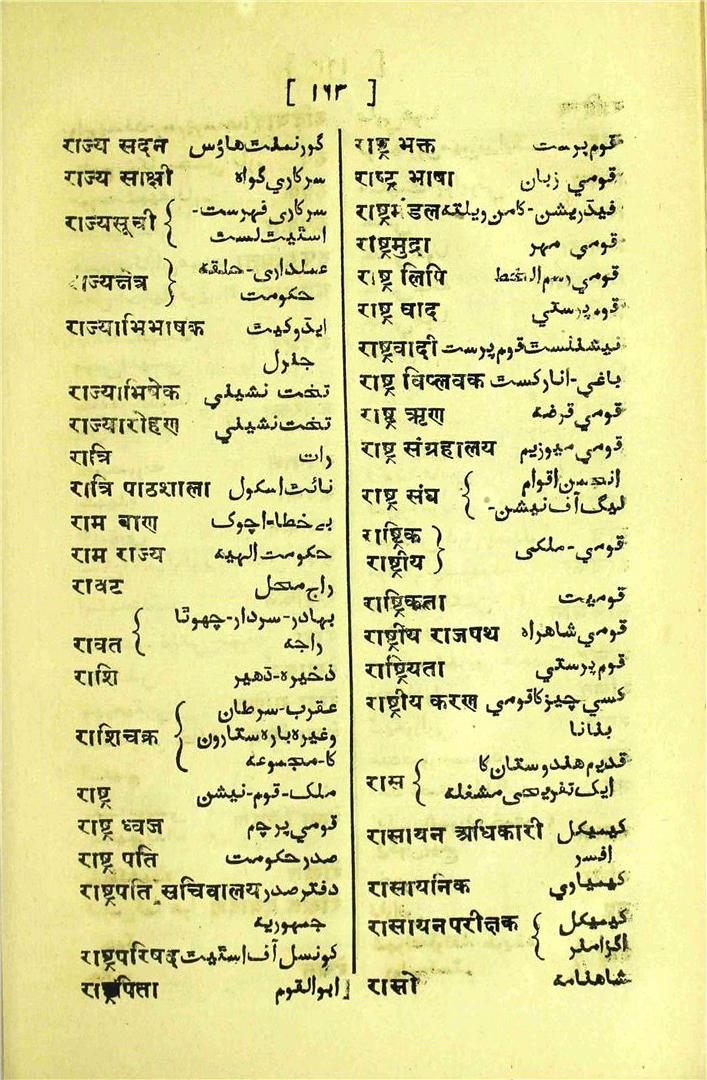 [ ۱۶۳ ]
राज्य सदन گورنمنٹ ھاؤس
राज्य साक्षी سرکاري گواہ
राज्यसूची { سرکاری فہرست-
اسٹیٹ لسٹ
राज्यक्षेत्र } عملداری-حلقہ
حکومت
राज्याभिभाषक ایڈوکیٹ
جنرل
राज्याभिषेक تخت نشیلي
राज्यारोहण تخت نشیلي
रात्रि رات
रात्रि पाठशाला نائٹ اسکول
राम बाण بے خطا-اچوک
राम राज्य حکومت الہیہ
रावट راج محل
रावत { بہادر-سردار-چھوٹا
راجہ
राशि ذخیرہ-ڈھیر
राशिचक्र { عقرب-سرطان
وغیرہ بارہ ستارون
کا-مجموعہ
राष्ट्र ملک-قوم-نیشن
राष्ट्र ध्वज قومي پرچم
राष्ट्र पति صدر حکومت
राष्ट्रपति सचिवालय دفتر صدر
جمہوریہ
राष्ट्रपरिषद् کونسل آف اسٹیٹ
राष्ट्रपिता ابوالقوم
राष्ट्र भक्त قوم پرست
राष्ट्र भाषा قومي زبان
राष्ट्रमंडल فیڈریشن-کامن ویلتھ
राष्ट्रमुद्रा قومي مہر
राष्ट्र लिपि قومي رسم الخط
राष्ट्र वाद قوم پرستي
राष्ट्रवादी نیشنلسٹ قوم پرست
राष्ट्र विप्लवक باغي-انارکسٹ
राष्ट्र ऋण قومي قرضہ
राष्ट्र संग्रहालय قومي میوزیم
राष्ट्र संघ { انجمن اقوام
لیگ آف نیشن-
राष्ट्रिक }
राष्ट्रीय } قومي-ملکی
राष्ट्रिकता قومیت
राष्ट्रीय राजपथ قومي شاھراہ
राष्ट्रियता قوم پرستي
राष्ट्रीय करण کسي چیز کا قومي
بنانا
रास { قدیم ھندوستان کا
ایک تفریحی مشغلہ
रासायन अधिकारी کیمیکل
افسر
रासायनिक کیمیاوي
रासायन परीक्षक { کیمیکل
اگزامنر
रासो شاھنامہ